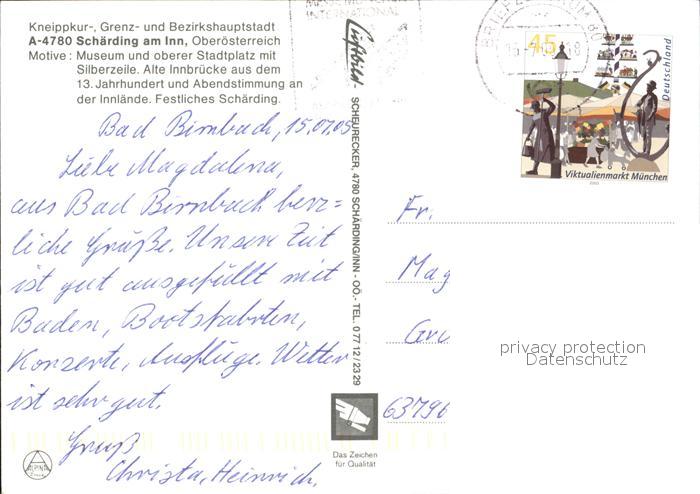 Kneippkur-, Grenz- und Bezirkshauptstadt
A-4780 Schärding am Inn, Oberösterreich
Motive: Museum und oberer Stadtplatz mit
Silberzeile. Alte Innbrücke aus dem
13. Jahrhundert und Abendstimmung an
der Innlände. Festliches Schärding.
Bad Birnbach, 15.07.05
Liebe Magdalena,
aus Bad Birnbach herz=
liche Grüße. Unsere Zeit
ist gut ausgefüllt mit
Baden, Bootsfahrten,
Konzerte, Ausflüge. Wetter
ist sehr gut.
Gruß
Christa, Heinrich.
ALPINA
Luftbild-
SCHEURECKER, 4780 SCHÄRDING/INN - OÖ., - TEL. 0 77 12 / 23 29
Das Zeichen
für Qualität
INTERNATIONAL
BRIEFZENTRUM
45
Deutschland
Viktualienmarkt München
2003
Fr.
Mag
63796
privacy protection
Datenschutz